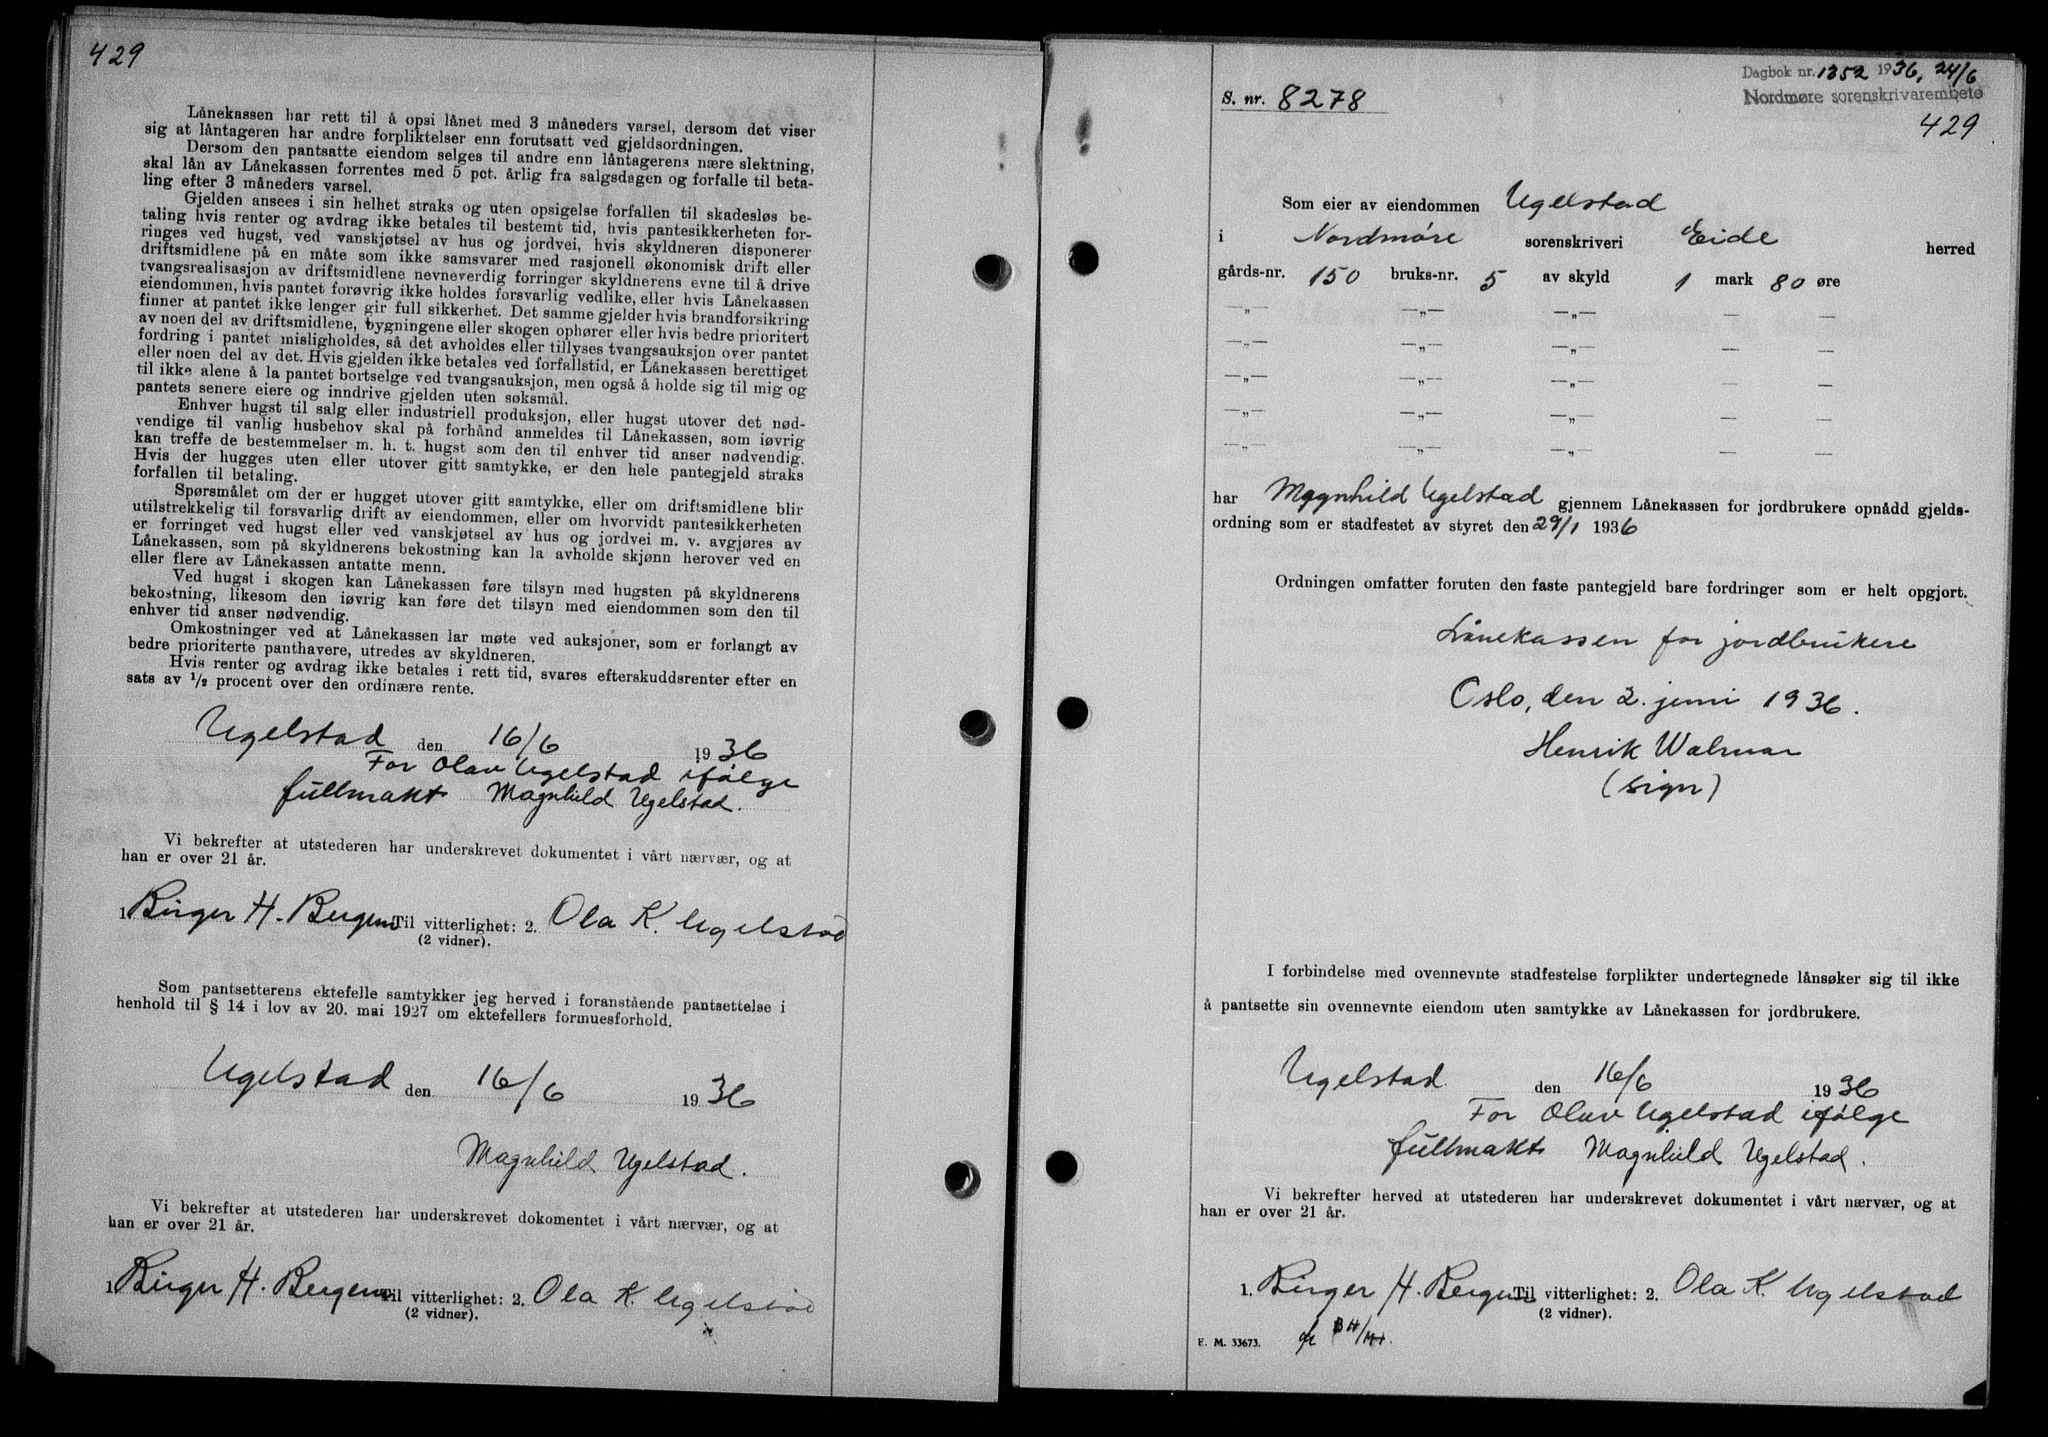 429
Lånekassen har rett til å opsi lånet med 3 måneders varsel, dersom det viser
sig at låntageren har andre forpliktelser enn forutsatt ved gjeldsordningen.
Dersom den pantsatte eiendom selges til andre enn låntagerens nære slektning,
skal lån av Lånekassen forrentes med 5 pct. årlig fra salgsdagen og forfalle til beta-
ling efter 3 måneders varsel.
Gjelden ansees i sin helhet straks og uten opsigelse forfallen til skadesløs be-
taling hvis renter og avdrag ikke betales til bestemt tid, hvis pantesikkerheten for-
ringes ved hugst, ved vanskjøtsel av hus og jordvei, hvis skyldneren disponerer
driftsmidlene på en måte som ikke samsvarer med rasjonell økonomisk drift eller
tvangsrealisasjon av driftsmidlene nevneverdig forringer skyldnerens evne til å drive
eiendommen, hvis pantet forøvrig ikke holdes forsvarlig vedlike, eller hvis Lånekassen
finner at pantet ikke lenger gir full sikkerhet. Det samme gjelder hvis brandforsikring
av noen del av driftsmidlene, bygningene eller skogen ophører eller hvis bedre prioritert
fordring i pantet misligholdes, så det avholdes eller tillyses tvangsauksjon over pantet
eller noen del av det. Hvis gjelden ikke betales ved forfallstid, er Lånekassen berettiget
til ikke alene å la pantet bortselge ved tvangsauksjon, men også å holde sig til mig og
pantets senere eiere og inndrive gjelden uten søksmål.
Enhver hugst til salg eller industriell produksjon, eller hugst utover det nød-
vendige til vanlig husbehov skal på forhånd anmeldes til Lånekassen, som iøvrig
kan treffe de bestemmelser m. h. t. hugst som den til enhver tid anser nødvendig.
Hvis der hugges uten eller utover gitt samtykke, er den hele pantegjeld straks
forfallen til betaling.
Spørsmålet om der er hugget utover gitt samtykke, eller om driftsmidlene blir
utilstrekkelig til forsvarlig drift av eiendommen, eller om hvorvidt pantesikkerheten
er forringet ved hugst eller ved vanskjøtsel av hus og jordvei m. v. avgjøres av
Lånekassen, som på skyldnerens bekostning kan la avholde skjønn herover ved en
eller flere av Lånekassen antatte menn.
Ved hugst i skogen kan Lånekassen føre tilsyn med hugsten på skyldnerens
bekostning, likesom den iøvrig kan føre det tilsyn med eiendommen som den til
enhver tid anser nødvendig.
Omkostninger ved at Lånekassen lar møte ved auksjoner, som er forlangt av
bedre prioriterte panthavere, utredes av skyldneren.
Hvis renter og avdrag ikke betales i rett tid, svares efterskuddsrenter efter en
sats av 1/2 procent over den ordinære rente.
Ugelstad den 16/6 1936
For Olav Ugelstad ifølge
fullmakt Magnhild Ugelstad.
Vi bekrefter at utstederen har underskrevet dokumentet i vårt nærvær, og at
han er over 21 år.
1. Birger H. Bergem Til vitterlighet: 2. Ola K. Ugelstad
(2 vidner).
Som pantsetterens ektefelle samtykker jeg herved i foranstående pantsettelse i
henhold til § 14 i lov av 20. mai 1927 om ektefellers formuesforhold.
Ugelstad den 16/6 1936
Magnhild Ugelstad.
Vi bekrefter at utstederen har underskrevet dokomentet i vårt nærvær, og at
han er over 21 år.
1. Birger H. Bergem Til vitterlighet: 2. Ola K. Ugelstad
(2 vidner).
Dagbok nr. 1352 1936, 24/6
Nordmøre sorenskrivarembete
S. nr. 8278
429
Som eier av eiendommen Ugelstad
i Nordmøre sorenskriveri Eide herred
gårds-nr. 150 bruks-nr. 5 av skyld 1 mark 80 øre
—„— —„— —„— — —
—„— —„— —„— — —
—„— —„— —„— — —
—„— —„— —„— — —
—„— —„— —„— — —
har Magnhild Ugelstad gjennem Lånekassen for jordbrukere opnådd gjelds-
ordning som er stadfestet av styret den 29/1 1936
Ordningen omfatter foruten den faste pantegjeld bare fordringer som er helt opgjort.
Lånekassen for jordbrukere
Oslo, den 2. juni 1936.
Henrik Walmar
(sign)
I forbindelse med ovennevnte stadfestelse forplikter undertegnede lånsøker sig til ikke
å pantsette sin ovennevnte eiendom uten samtykke av Lånekassen for jordbrukere.
Ugelstad den 16/6 1936
For Olav Ugelstad ifølge
fullmakt Magnhild Ugelstad.
Vi bekrefter herved at utstederen har underskrevet dokumentet i vårt nærvær, og at
han er over 21 år.
1. Birger H. Bergem Til vitterlighet: 2. Ola K. Ugelstad
(2 vidner).
F. M. 33673.